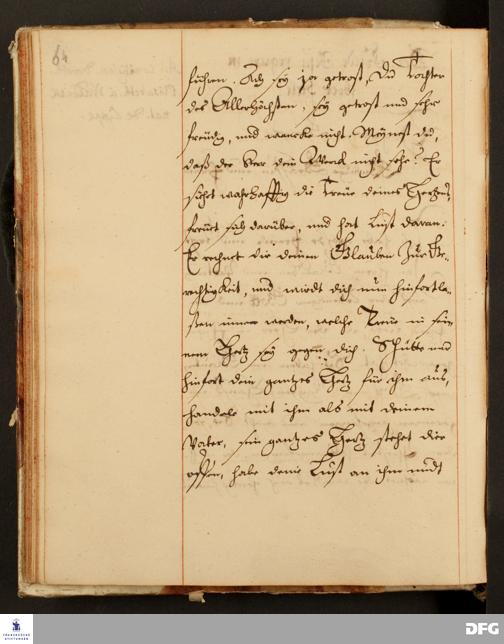 führen. Ach sey ja getrost, du Tochter
des Allerhöchsten, sey getrost und sehr
freudig, und wancke nicht. Meynest du,
daß der Herr dein Werck nicht sehe? Er
siehet wahrhafftig die Treue deines Hertzens,
freuet sich darüber, und hat Lust daran.
Er rechnet dir deinen Glauben zur Ge-
rechtigkeit, und wirdt dich nun hinfort la-
ßen innen werden, welche Treue in sei-
nem Hertz sey gegen dich. Schütte nun
hinfort dein gantzes Hertz für ihm aus,
handele mit ihm als mit deinem
Vater, sein gantzes Hertz stehet dir
offen, habe deine Lust an ihm undt
FRANCKESCHE
STIFTUNGEN
DFG